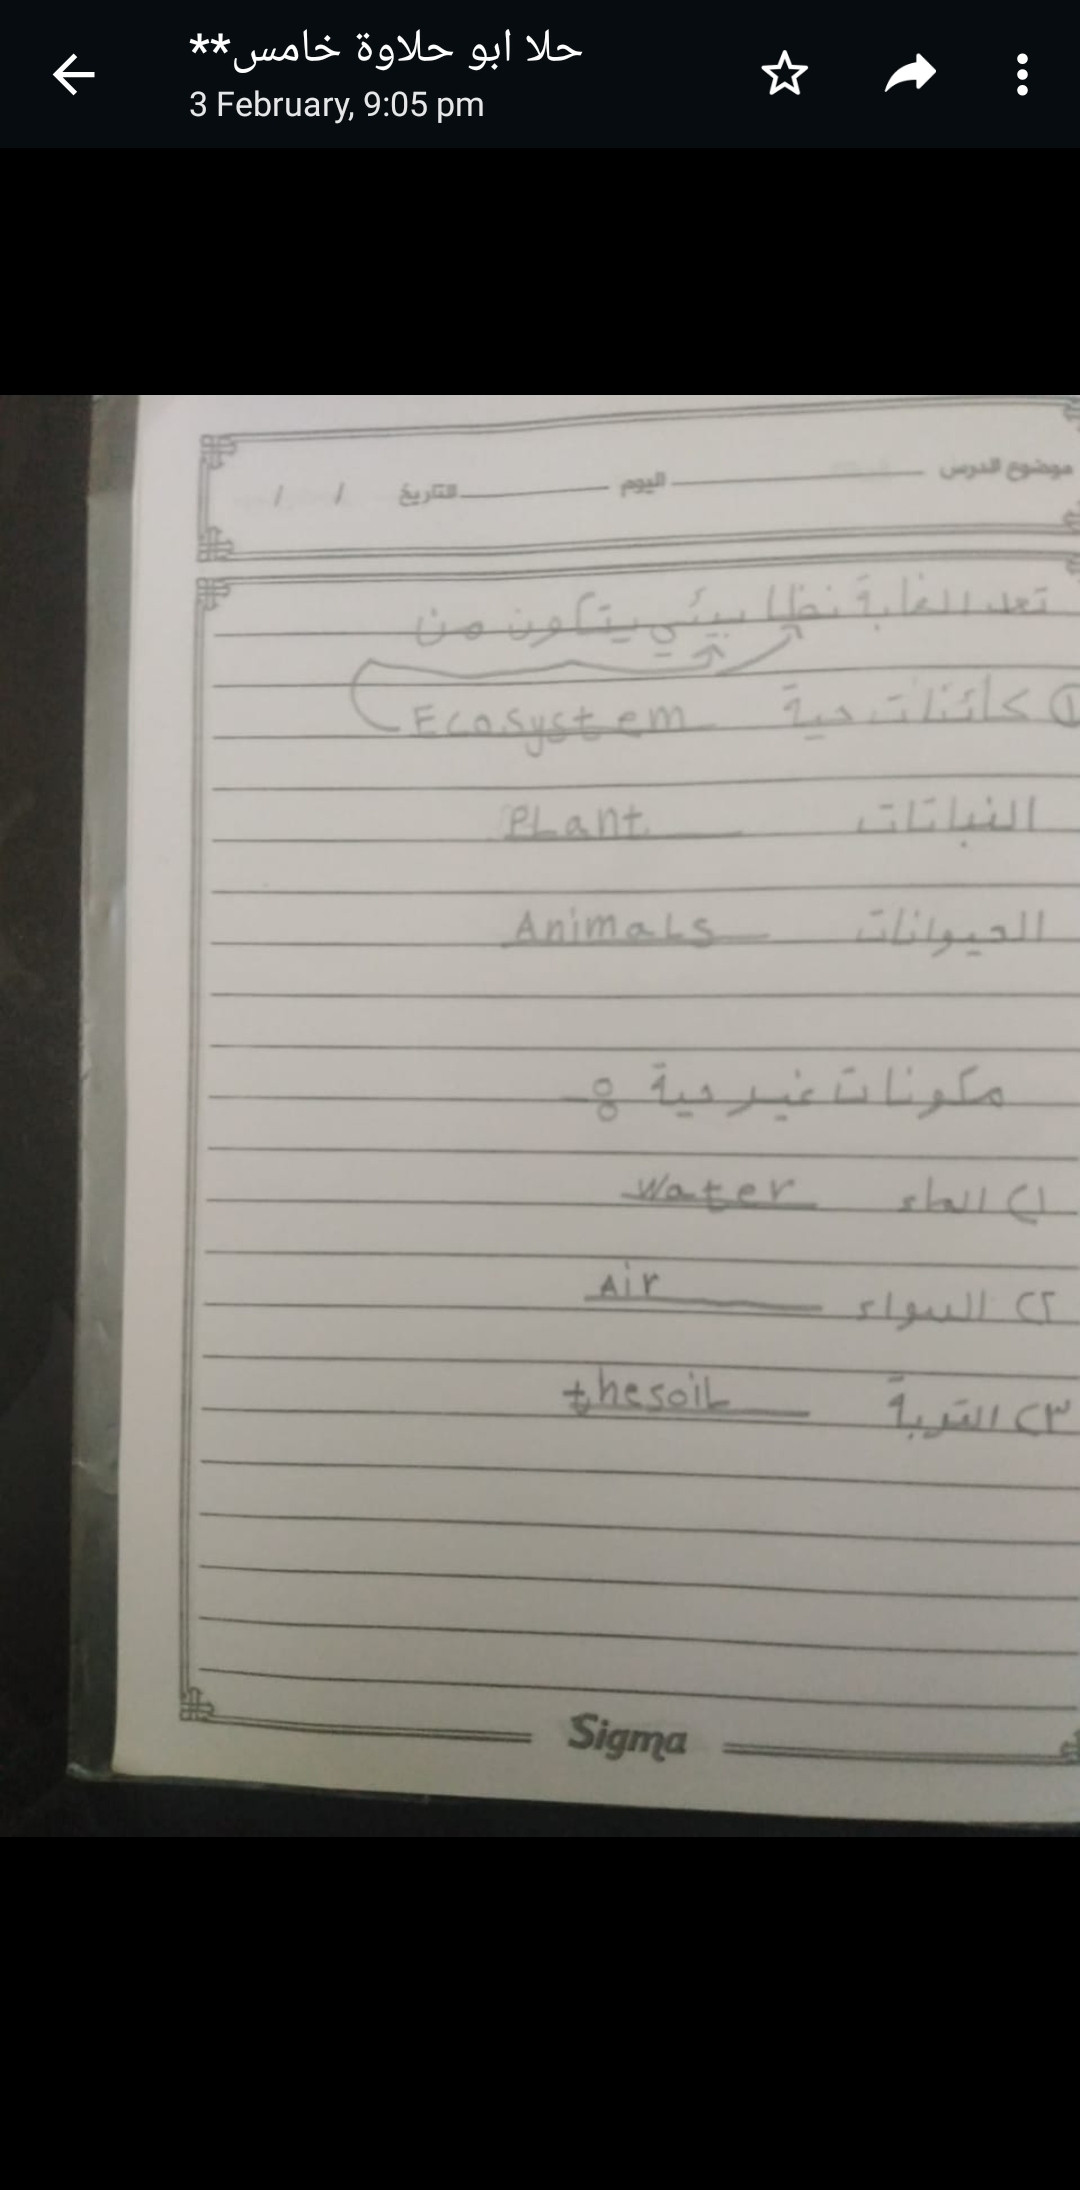 حلا ابو حلاوة خامس**
3 February, 9:05 pm
موضوع الدرس اليوم التاريخ / /
تعد الغابة نظا بيئي يتكون من
① كائنات حية Ecosystem
النباتات PLant
الحيوانات AnimaLs
مكونات غير حية :-
١) الماء Water
٢) الهواء Air
٣) التربة thesoiL
Sigma